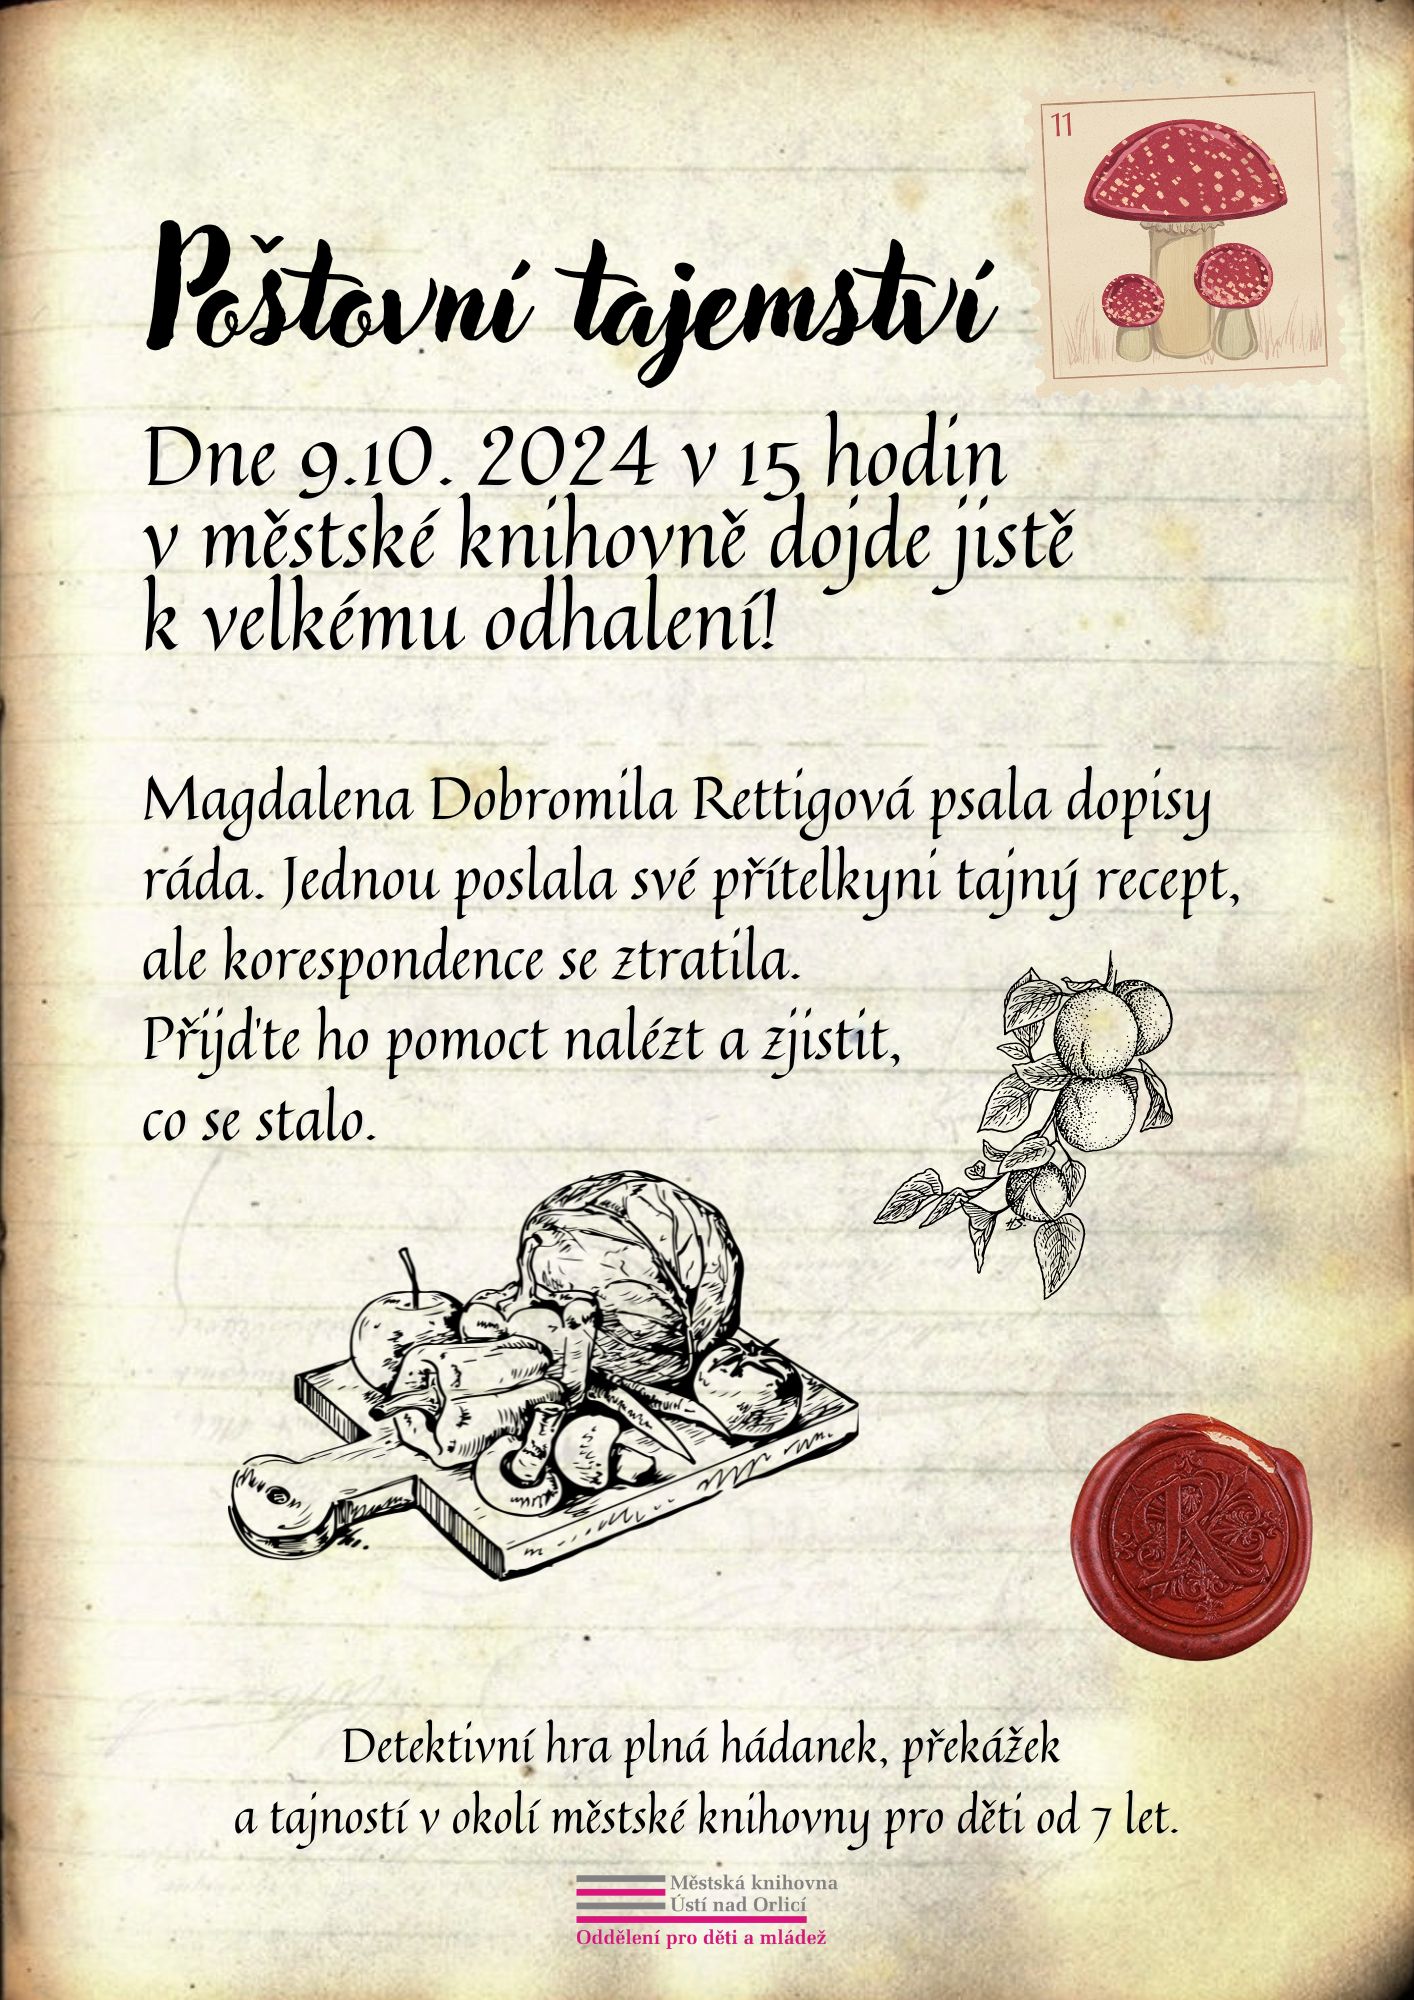 11
Poštovní tajemství
Dne 9.10. 2024 v 15 hodin
v městské knihovně dojde jistě
k velkému odhalení!
Magdalena Dobromila Rettigová psala dopisy
ráda. Jednou poslala své přítelkyni tajný recept,
ale korespondence se ztratila.
Přijďte ho pomoct nalézt a zjistit,
co se stalo.
R
Detektivní hra plná hádanek, překážek
a tajností v okolí městské knihovny pro děti od 7 let.
Městská knihovna
Ústí nad Orlicí
Oddělení pro děti a mládež